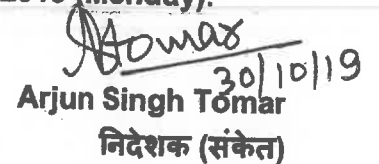 Tomar
30/10/19
Arjun Singh Tomar
निदेशक (संकेत)